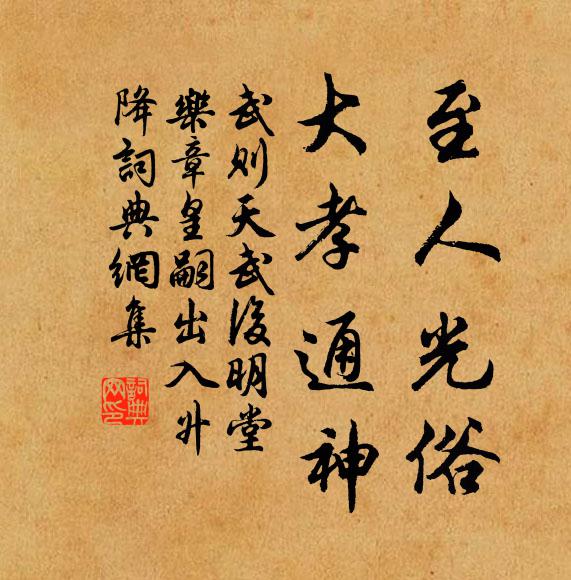 至人光俗
大孝通神
武則天武後明堂
樂章皇嗣出入升
降詞典網集
詞典网印